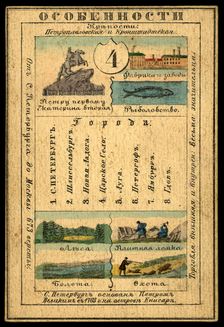 ОСОБЕННОСТИ
Крѣпости:
Петропавловская и Кронштадтская.
4
Петру первому
Екатерина вторая.
Фабрики и заводы.
Рыболовство.
Города:
1. С.ПЕТЕРБУРГЪ.
2. Шлиссельбургъ.
3. Новая Ладога.
4. Царское Село.
5. Луга.
6. Петергофъ.
7. Ямбургъ.
8. Гдовъ.
Лѣса.
Плитная ломка
Болота.
Охота.
С. Петербургъ основанъ Петромъ
Великимъ въ 1703 г. на островѣ Енисари.
Отъ С. Петербурга до Москвы 613 верстъ.
Торговля большими портами весьма значительна.